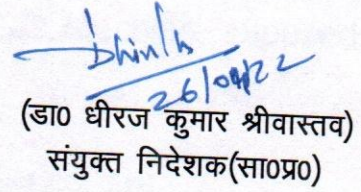 26/04/22
(डा0 धीरज कुमार श्रीवास्तव)
संयुक्त निदेशक(सा0प्र0)